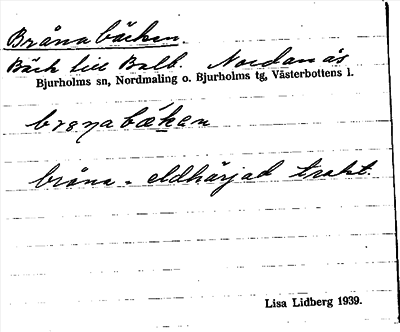 Brånabäcken.
Bäck till Balb. Nordanås
Bjurholms sn, Nordmaling o. Bjurholms tg, Västerbottens l.
bråna - eldhärjad trakt.
Lisa Lidberg 1939.